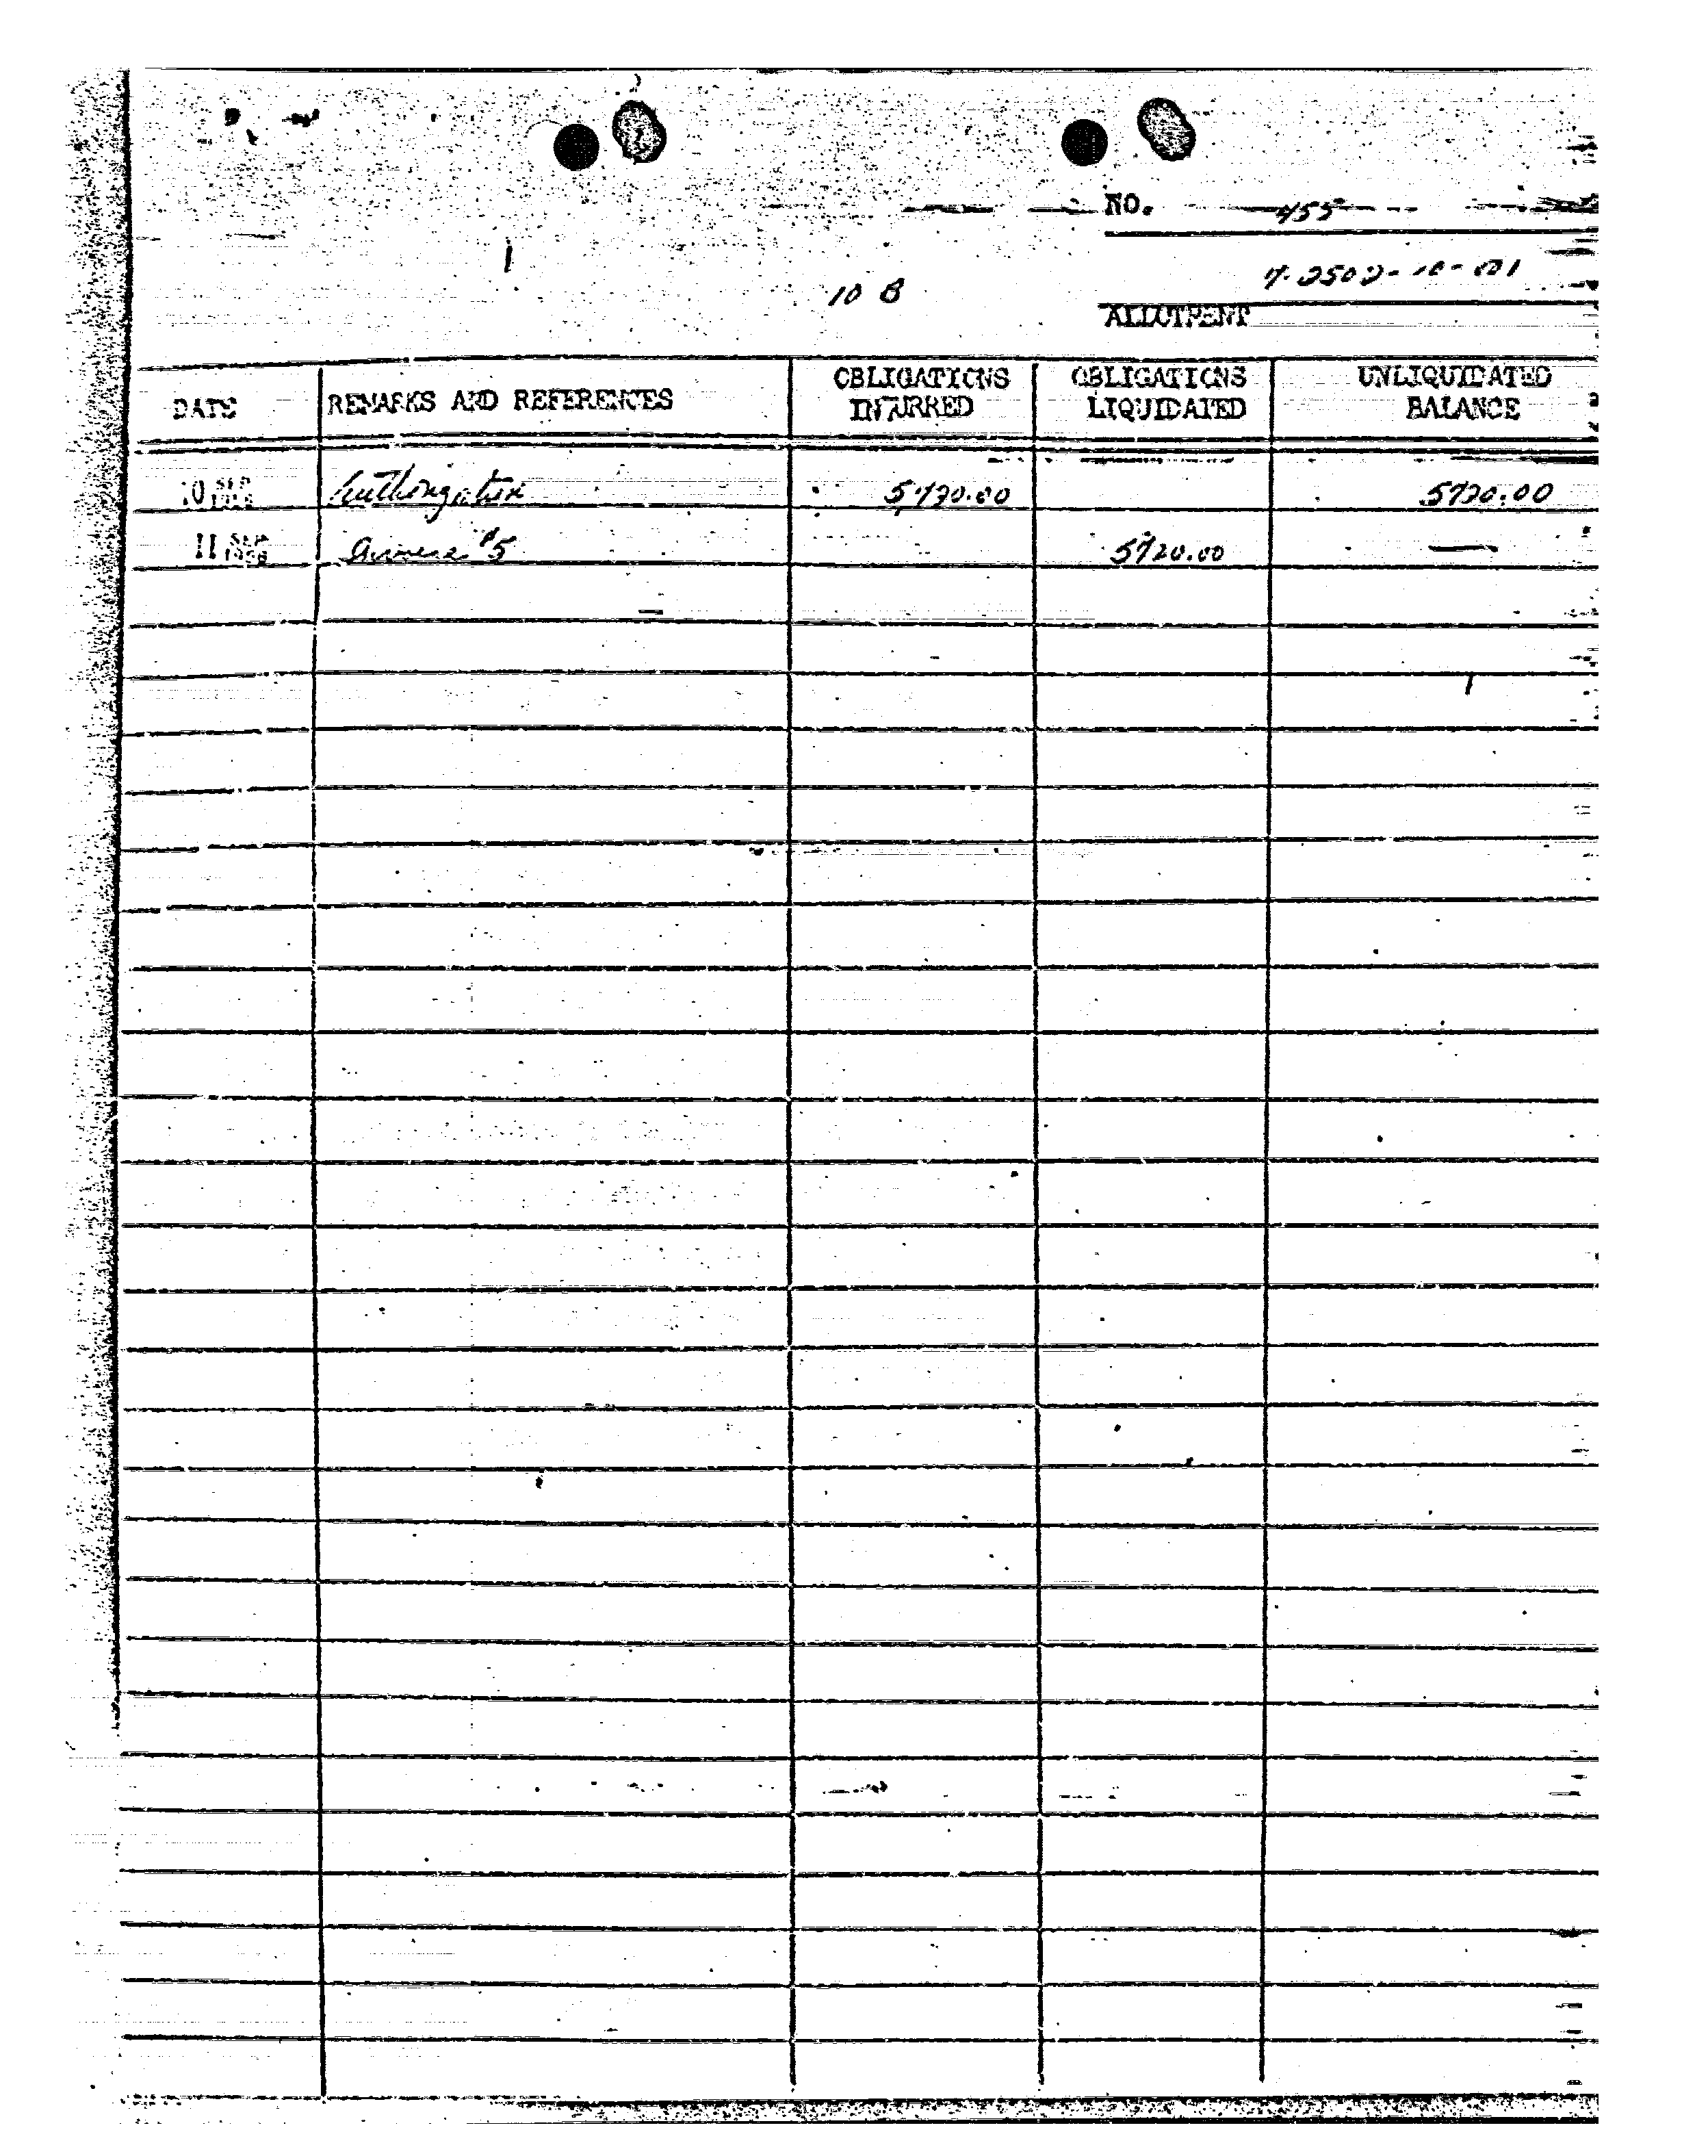 NO. 455
10 B
ALLOTMENT
DATE REMARKS AND REFERENCES OBLIGATIONS INCURRED OBLIGATIONS LIQUIDATED UNLIQUIDATED BALANCE
10 SEP Authorization 5720.00 5720.00
11 SEP #5 5720.00 —